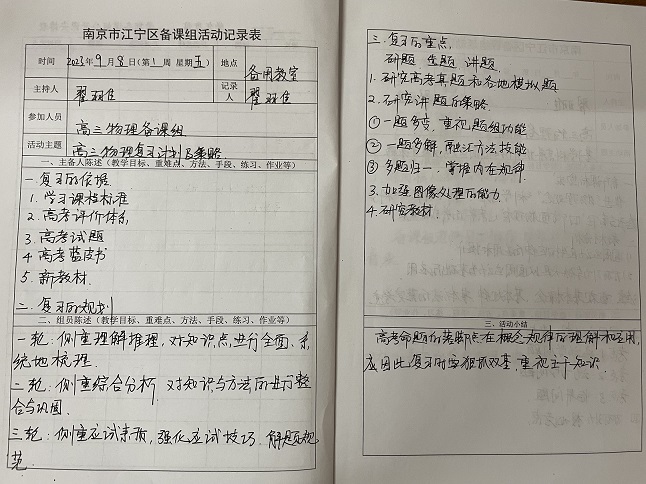 南京市江宁区备课组活动记录表
时间 2023年9月8日(第1周 星期五) 地点 备用教室
主持人 翟羽佳 记录人 翟羽佳
参加人员 高三物理备课组
活动主题 高三物理复习计划及策略
一、主备人陈述（教学目标、重难点、方法、手段、练习、作业等）
一 复习的依据
1. 学习课程标准
2. 高考评价体系
3. 高考试题
4 高考蓝皮书
5. 新教材
二. 复习的规划
二、组员陈述（教学目标、重难点、方法、手段、练习、作业等）
一轮:侧重理解推理,对知识点进行全面、系
统地梳理.
二轮:侧重综合分析 对知识与方法的进行整
合与巩固.
三轮:侧重应试素质,强化应试技巧.解题规
范.
三.复习的重点.
研题 生题 讲题.
1. 研究高考真题和各地模拟题
2. 研究讲题的策略
① 一题多变,重视题组功能
② 一题多解,融汇方法技能
③ 多题归一.掌握内在规律
3. 加强图像处理的能力.
4. 研究教材.
三、活动小结
高考命题的落脚点在概念规律的理解和应用,
应因此复习时应狠抓双基,重视主干知识.